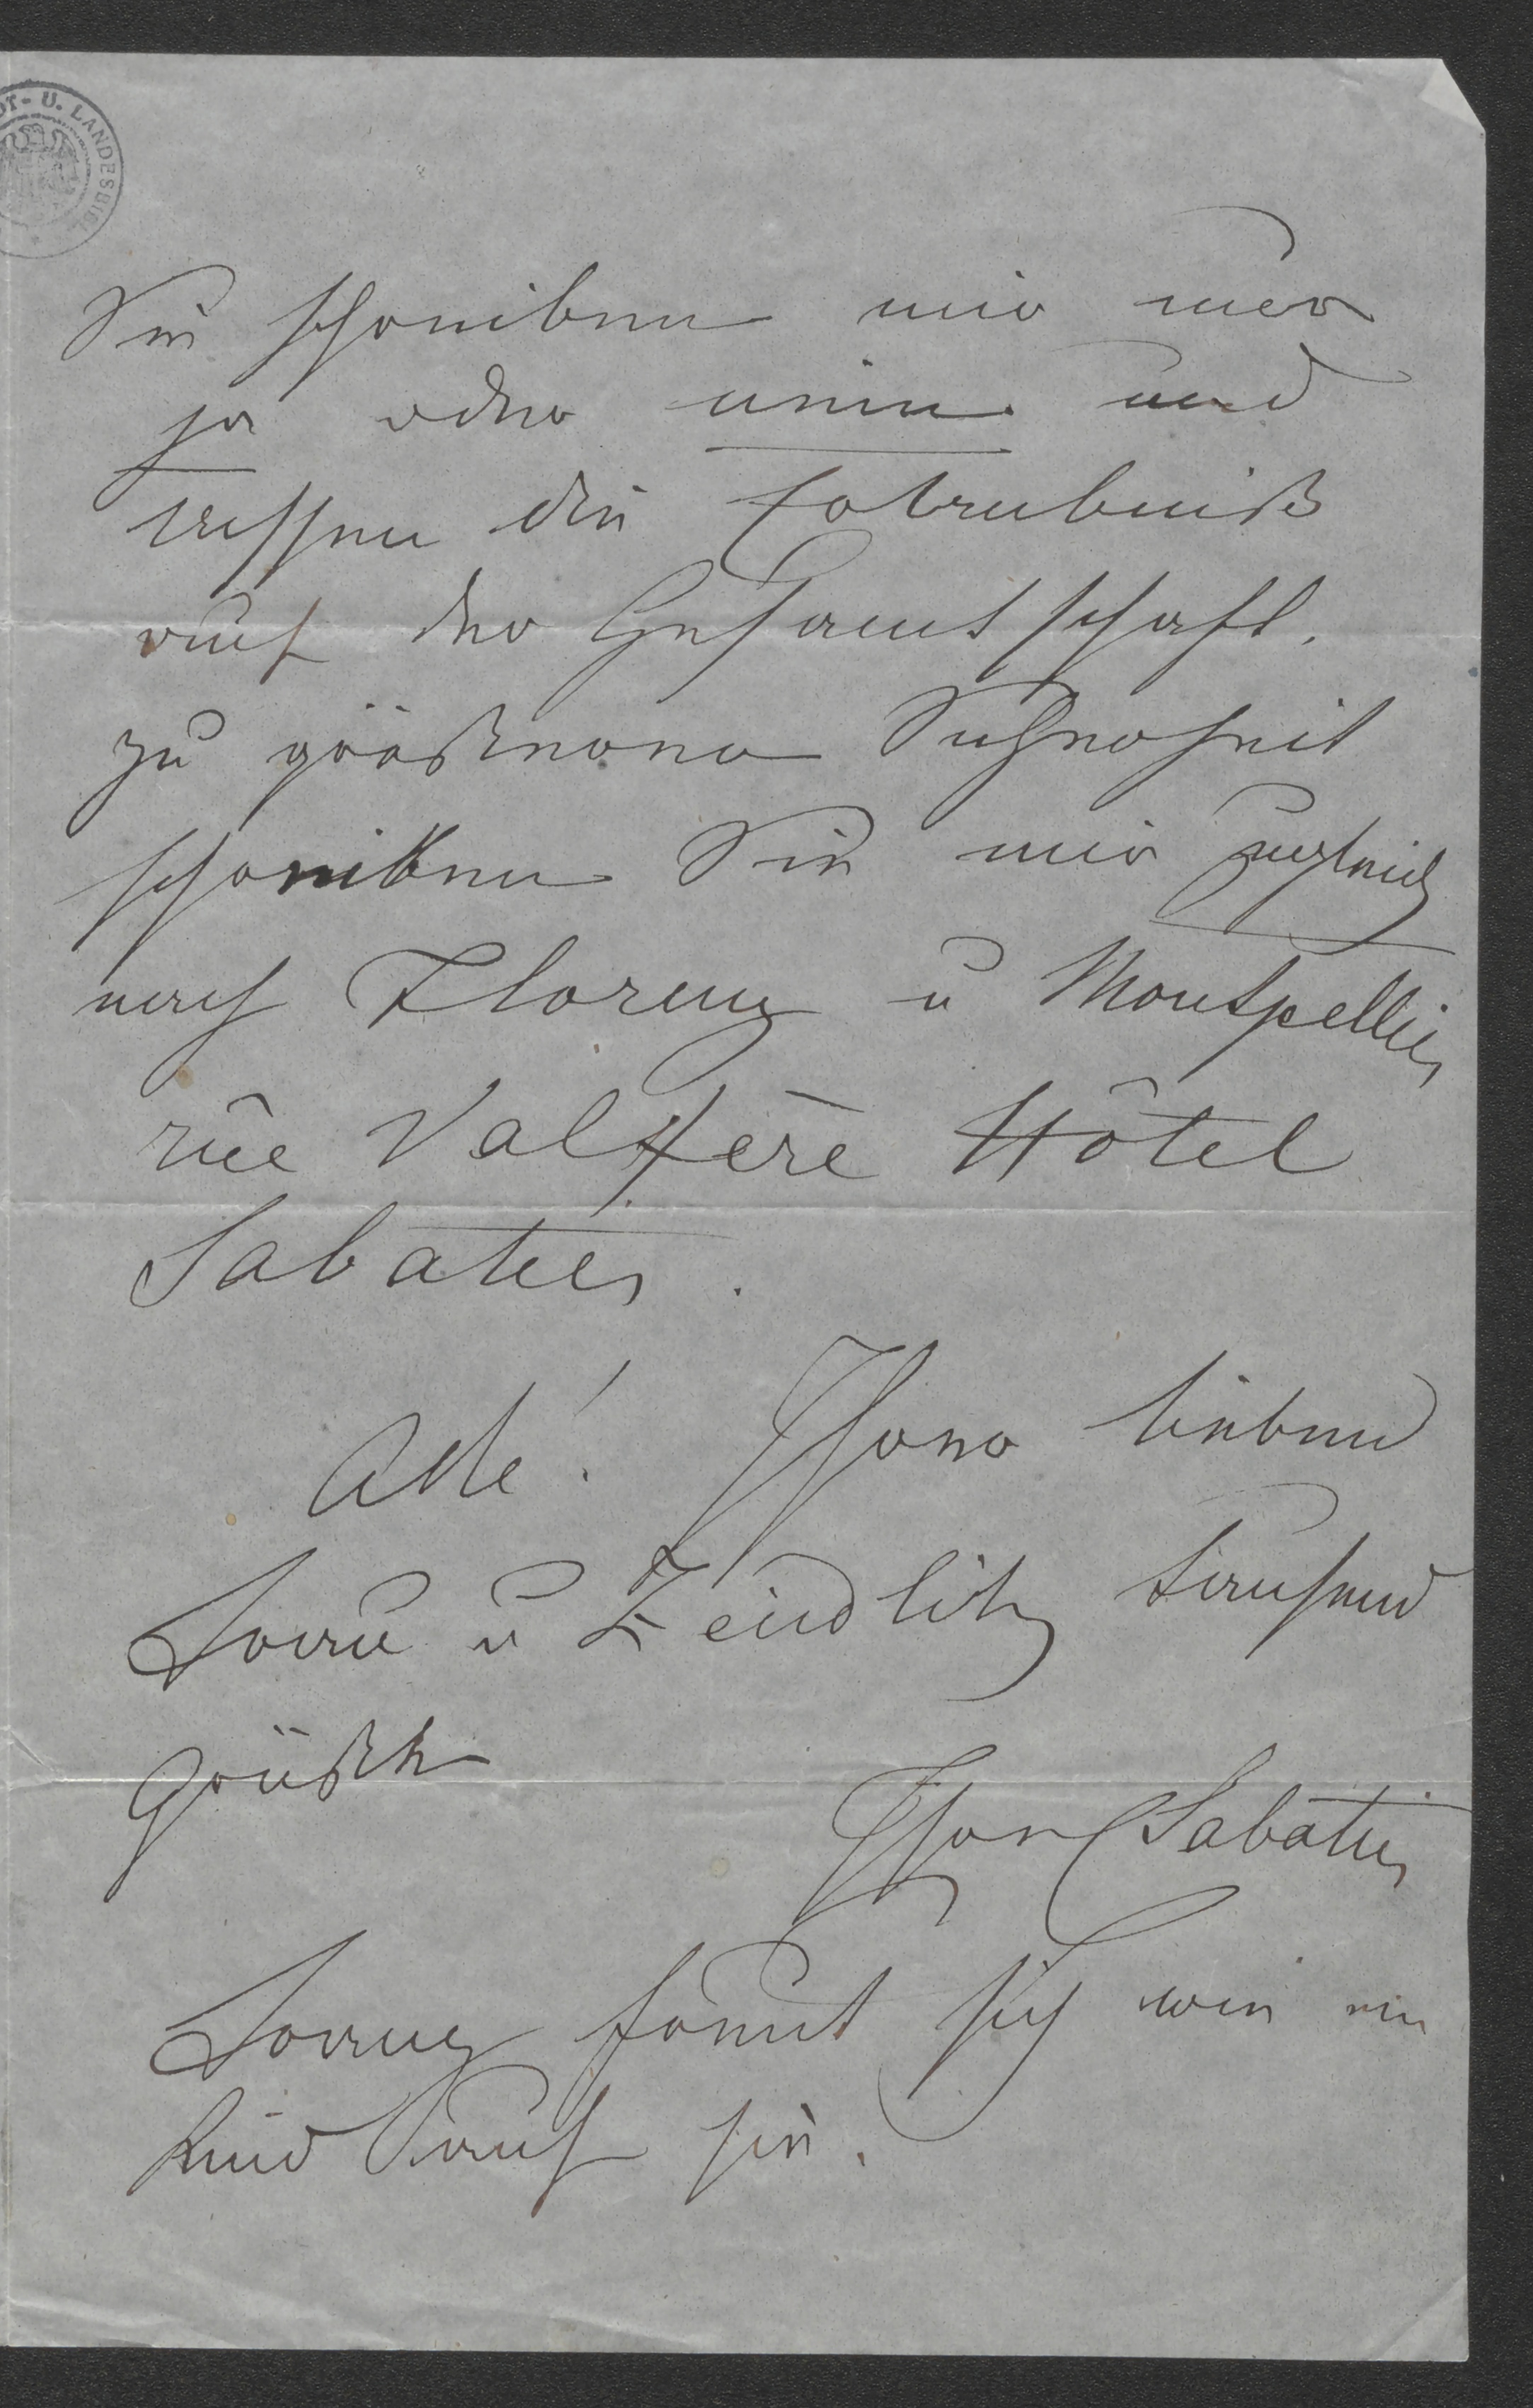 Sie schreiben mir nur
ja oder nein und
lassen die Erlaubniß
auf der Gesandtschaft.
zu größerer Sicherheit
schreiben Sie mir zugleich
nach Florenz u Montpellier
rue Valfère Hôtel
Sabatier.
Ade! Ihrer lieben
Frau u Zeidlitz tausend
Grüße
Ihre C Sabatier
freut sich wie ein
Kind drauf hin.